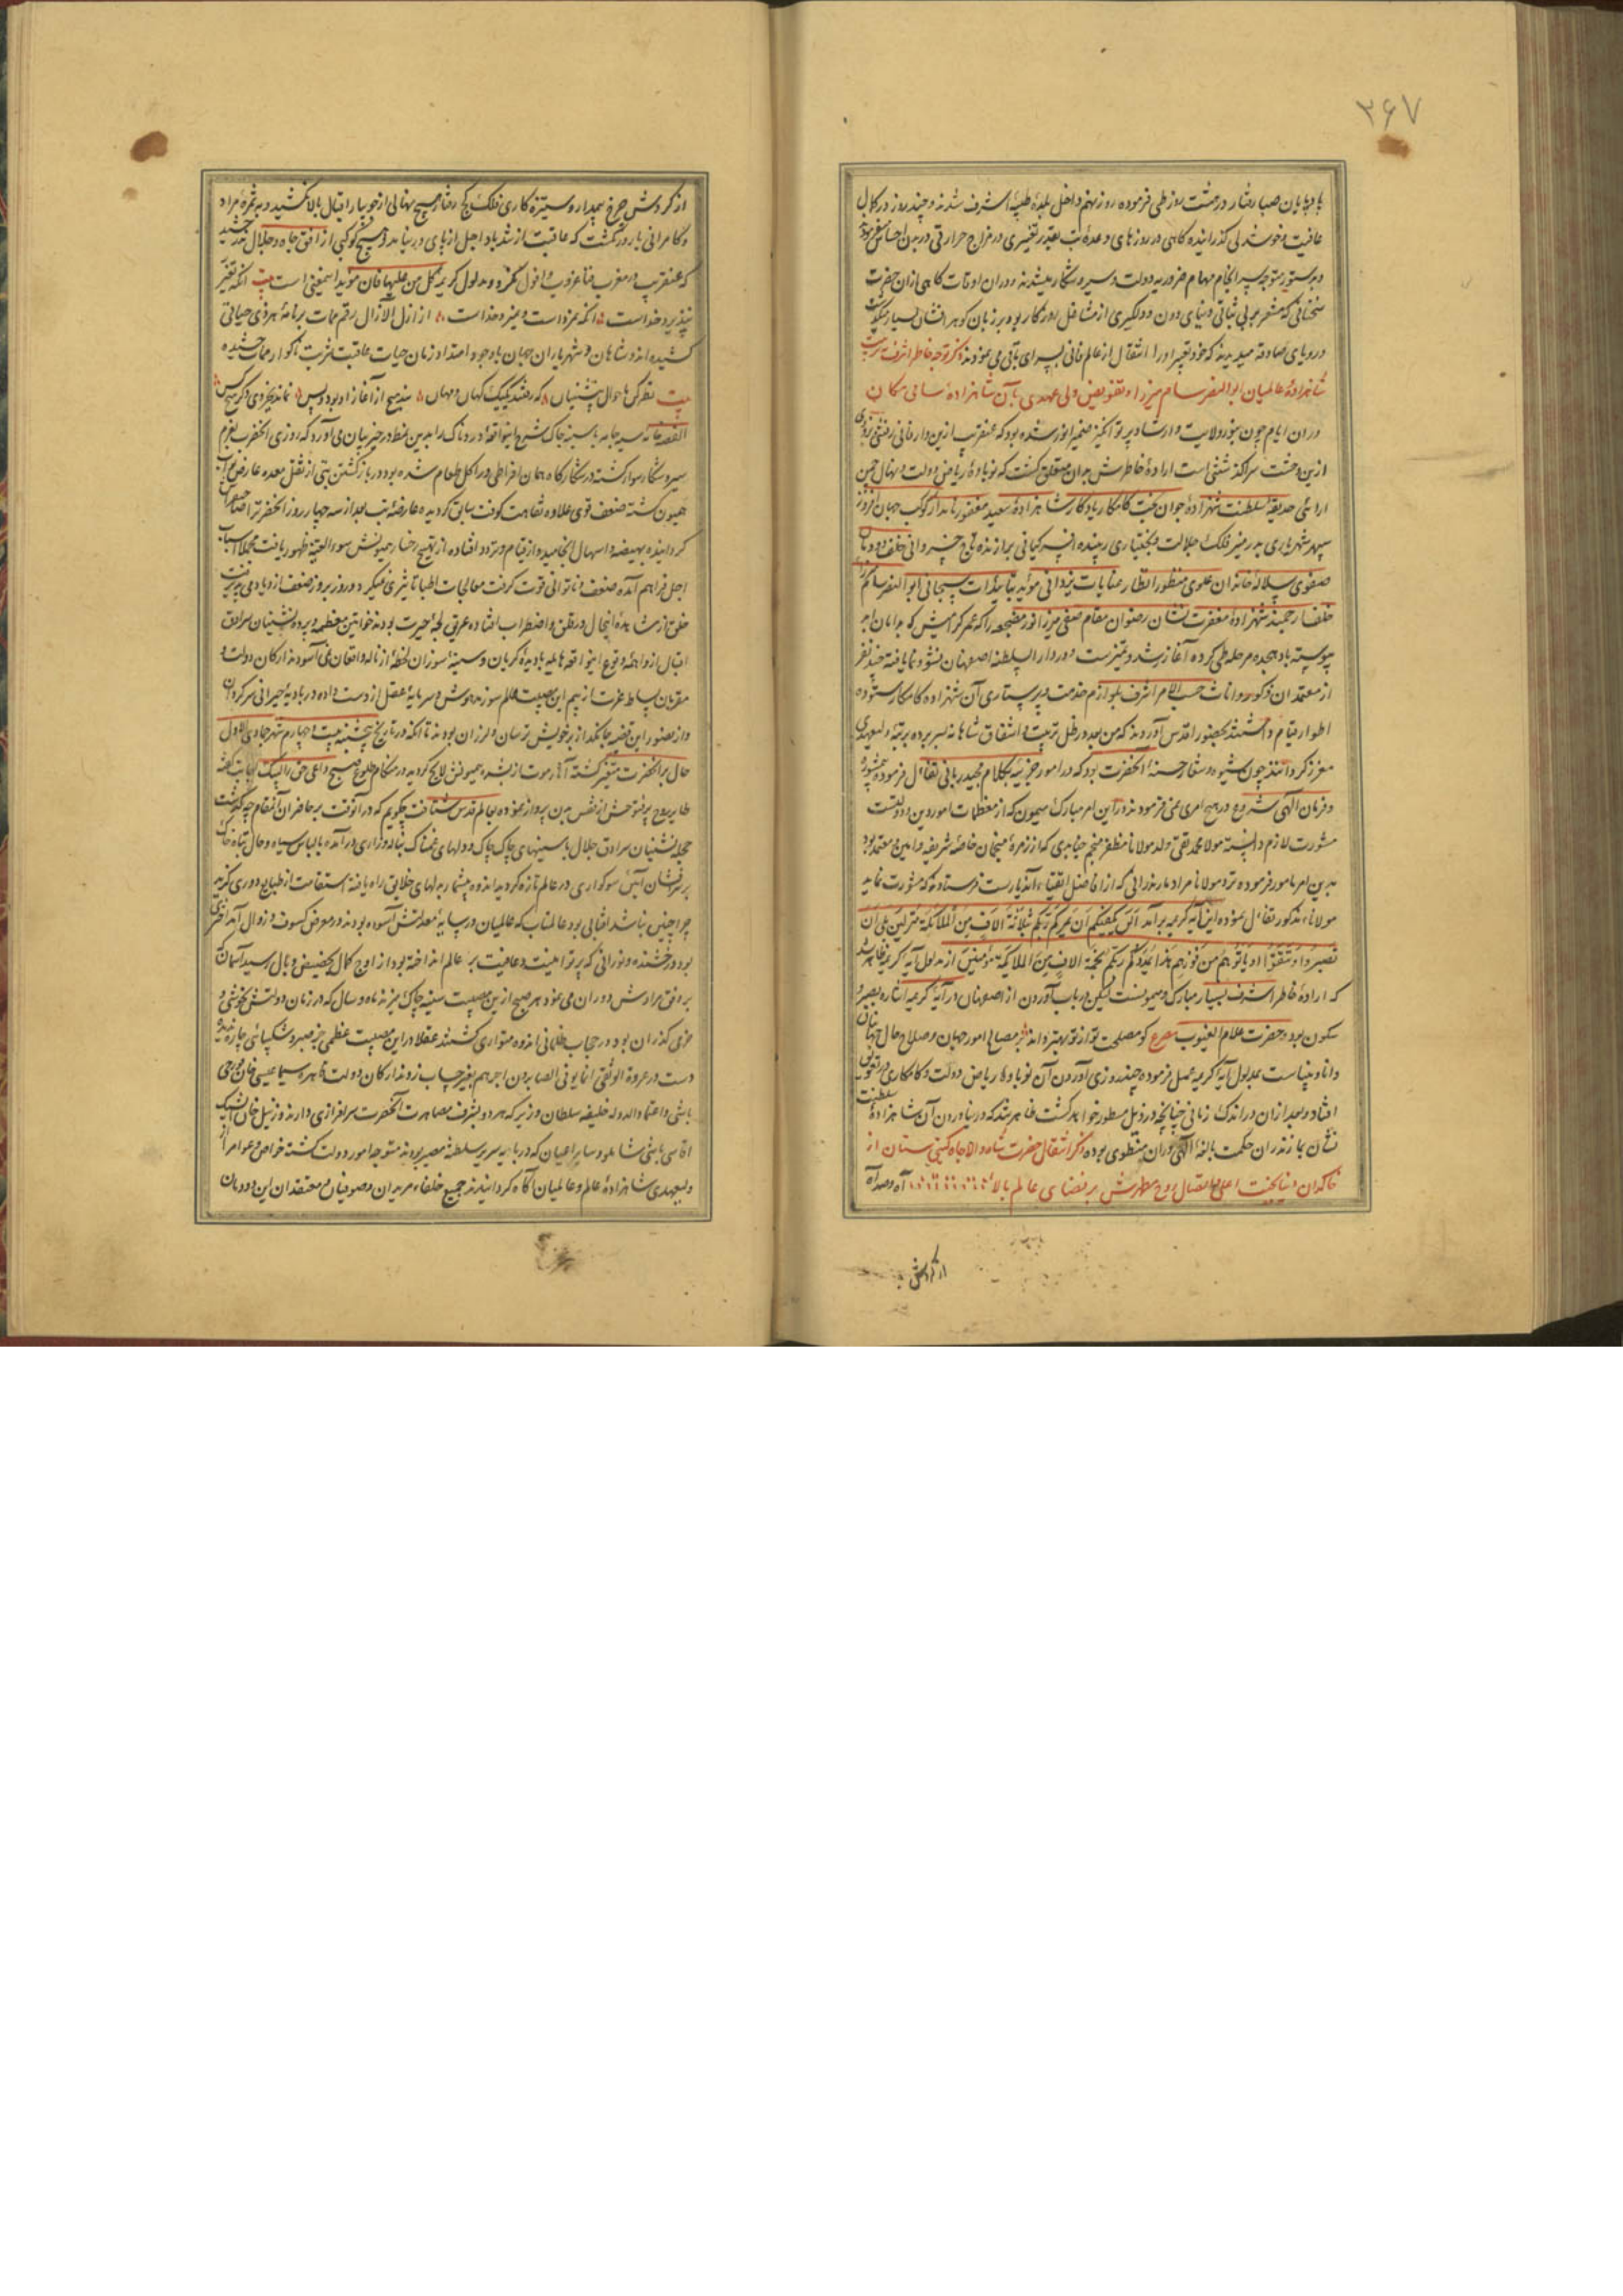 ۳۶۷
بادپایان صبا رفتار در هشت روز طی فرموده روز نهم داخل بلدهٔ طیبهٔ اشرف شدند و چند روز در کمال
عافیت و خوشدلی گذرانیده گاهی در روزهای وعدهٔ تب بقدر تغییری در مزاج حرارتی در بدن احساس میفرمودند
و بدستور متوجه سرانجام مهام ضروریه دولت و سیر و شکار میشدند در آن اوقات گاهی از آن حضرت
سخنانی که مشعر بر بی ثباتی دنیای دون و دلگیری از مشاغل روزگار بود بر زبان گوهر افشان بسیار میگذشت
و رویای صادقه میدیدند که خود تعبیر او را انتقال از عالم فانی بسرای باقی می نمودند ذکر توجه خاطر اشرف بتربیت
شاهزادهٔ عالمیان ابوالنصر سام میرزا و تفویض ولی عهدی بآن شاهزادهٔ سامی مکان
در آن ایام چون بنور ولایت و ارشاد پرتو انگیز ضمیر انور شده بود که عنقریب ازین دار فانی رفتنی بزودی
ازین وحشت سرا گذشتنی است ارادهٔ خاطرش بدان متعلق گشت که نوباوهٔ ریاض دولت و نهال چمن
آرائی حدیقهٔ سلطنت شهزادهٔ جوان بخت کامکار یادگار شاهزادهٔ سعید مغفور نامدار کوکب جهان افروز
سپهر شهریاری بدر منیر فلک جلالت و بختیاری زیبنده افسر کیانی برازنده تاج خسروانی خلف دودمان
صفوی سلالهٔ خاندان علوی منظور انظار عنایات یزدانی مؤید بتائیدات سبحانی ابوالنصر سام میرزا
خلف ارجمند شهزادهٔ مغفرت نشان رضوان مقام صفی میرزا نور مضجعه را که عمر گرامیش که بدامان ابد
پیوسته باد هجده مرحله طی کرده آغاز رشد و تمیزست و در دارالسلطنه اصفهان نشو و نما یافته چند نفر
از معتمدان ذکور و اناث حسب الامر اشرف بلوازم خدمت و پرستاری آن شهزاده کامکار ستوده
اطوار قیام داشتند بحضور اقدس آورند که من بعد در ظل تربیت و اشفاق شاهانه بسر برده برتبهٔ ولیعهدی
معزز گردانند چون شیوه و شعار حسنهٔ آنحضرت بود که در امور جزئیه بکلام مجید ربانی تفأل فرموده بیمشورهٔ
و فرمان الهی شروع در هیچ امری نمی فرمودند در این امر مبارک میمون که از معظمات امور دین و دولتست
مشورت لازم دانسته مولانا محمد تقی ولد مولانا مظفر منجم جنابدی که از زمرهٔ منجمان خاصهٔ شریفه و امین و معتمد بود
بدین امر مامور فرموده نزد مولانا مراد مازندرانی که از افاضل اتقیاء آندیارست فرستادند که مشورت نماید
مولاناء مذکور تفأل نموده این آیه کریمه برآمد الن یکفیکم ان یمدکم ربکم بثلاثة الاف من الملائکة منزلین بلی ان
تصبروا و تتقوا و یاتوکم من فورهم هذا یمددکم ربکم بخمسة الاف من الملائکة مسومین از مدلول آیه کریمه ظاهر شد
که ارادهٔ خاطر اشرف بسیار مبارک و میمونست لیکن در باب آوردن از اصفهان در آیهٔ کریمه اشاره بصبر و
سکون بود و حضرت علام الغیوب مصرع کو مصلحت تو از تو بهتر داند بر مصالح امور جهان و صلاح حال جهانیان
دانا و بیناست بمدلول آیه کریمه عمل فرموده چند روزی آوردن آن نوباوهٔ ریاض دولت و کامکاری در تعویق
افتاد و بعد از آن در اندک زمانی چنانچه در ذیل مسطور خواهد گشت ظاهر شد که در نیاوردن آن شاهزادهٔ سلطنت
نشان بمازندران حکمت بالغهٔ الهی در آن منطوی بوده ذکر انتقال حضرت شاه والاجاه گیتی ستان از
خاکدان دنیا بجنت اعلی و اتصال روح مطهرش بر فضای عالم بالا آه و صد آه
از گردش
از گردش چرخ بیمدار و ستیزه کاری فلک کج رفتار هیچ نهالی از جویبار اقبال بالا نکشید و به ثمرهٔ مراد
و کامرانی بارور نگشت که عاقبت از تندباد اجل از پای در نیامد و هیچ کوکبی از افق جاه و جلال ندرخشید
که عنقریب در مغرب فنا غروب و افول نکرد و مدلول کریمهٔ کل من علیها فان مؤید این معنی است بیت آنکه تغیر
نپذیرد خداست آنکه نمردست و نمیرد خداست از ازل الآزال رقم ممات بر نامهٔ هر ذی حیاتی
کشیده اند و شاهان و شهریاران جهان با وجود امتداد زمان حیات عاقبت شربت ناگوار ممات چشیده
بیت نظر کن باحوال پیشینیان که رفتند یک یک کهان و مهان نبد هیچ از آغاز او بود و بس نماند بجز وی دگر هیچکس
القصه خامه سیه جامه با سینه چاک شرح این واقعهٔ دردناک را بدین نمط در حیز بیان می آورد که روزی آنحضرت بعزم
سیر و شکار سوار گشته در شکارگاه همان افراطی در اکل طعام شده بود در بازگشتن تبی از ثقل معده عارض ذات
همیون گشته ضعف قوی علاوه نقاهت کوفت سابق گردیده عارضهٔ تب بعد از سه چهار روز آنحضرت را صاحب فراش
گردانیده بهیضه و اسهال انجامید و از قیام و تردد افتاده از تهییج رخسار همیونش سوء القنیه ظهور یافت مجملا اسباب
اجل فراهم آمده ضعف و ناتوانی قوت گرفت معالجات اطبا تاثیری نمیکرد و روز بروز ضعف ازدیاد می پذیرفت
خلق از مشاهدهٔ اینحال در قلق و اضطراب افتاده غرق لجهٔ حیرت بودند خواتین معظمه و پرده نشینان سرادق
اقبال از واهمهٔ وقوع این واقعه هایله با دیدهٔ گریان و سینهٔ سوزان لحظهٔ از ناله و افغان نمی آسودند ارکان دولت و
مقربان بساط عزت از بیم این مصیبت عالم سوز مدهوش و سرمایهٔ عقل از دست داده در بادیهٔ حیرانی سرگردان
و از تصور این قضیه جانگداز بر خویش ترسان و لرزان بودند تا آنکه در تاریخ پنجشنبه بیست و چهارم شهر جمادی الاول
حال بر آنحضرت متغیر گشته آثار موت از بشرهٔ همیونش لایح گردید در هنگام طلوع صبح داعی حق را لبیک اجابت گفته
طایر روح پرفتوحش از قفس بدن پرواز نموده بعالم قدس شتافت چگویم که در آنوقت بر حاضران آنمقام چه گذشت
حجله نشینان سرادق جلال با سینهای چاک چاک و دلهای غمناک بناله و زاری درآمده با لباس سیاه و حال تباه خاک
بر سر فشان آئین سوگواری در عالم تازه گردید اندوه بیشمار بدلهای خلایق راه یافته استقامت از طبایع دوری گزید
چرا چنین نباشد آفتابی بود عالمتاب که عالمیان در سایهٔ معدلتش آسوده بودند در معرض کسوف و زوال آمد اختری
بود درخشنده و نورانی که پرتو امنیت و عافیت بر عالم انداخته بود از اوج کمال بحضیض وبال رسید آسمان
بر وفق مرادش دوران می نمود هر صبح ازین مصیبت سینه چاک میزند ماه و سال که در زمان دولتش بخوشی و
خرمی گذران بود در حجاب ظلمانی اندوه متواری گشتند عقلا در این مصیبت عظمی جز صبر و شکیبائی چاره ندیده
دست در عروة الوثقی انما یوفی الصابرون اجرهم بغیر حساب زدند ارکان دولت قاهره سیما عیسی خان قورچی
باشی و اعتمادالدوله خلیفه سلطان وزیر که هر دو بشرف مصاهرت آنحضرت سرافرازی دارند و زینل خان ایشیک
آقاسی باشی شاملو و سایر اعیان که در پایه سریر سلطنه مصیر بودند متوجه امور دولت گشته خواص و عوام را از
ولیعهدی شاهزادهٔ عالم و عالمیان آگاه گردانیدند جمیع خلفاء و مریدان و صوفیان و معتقدان این دودمان